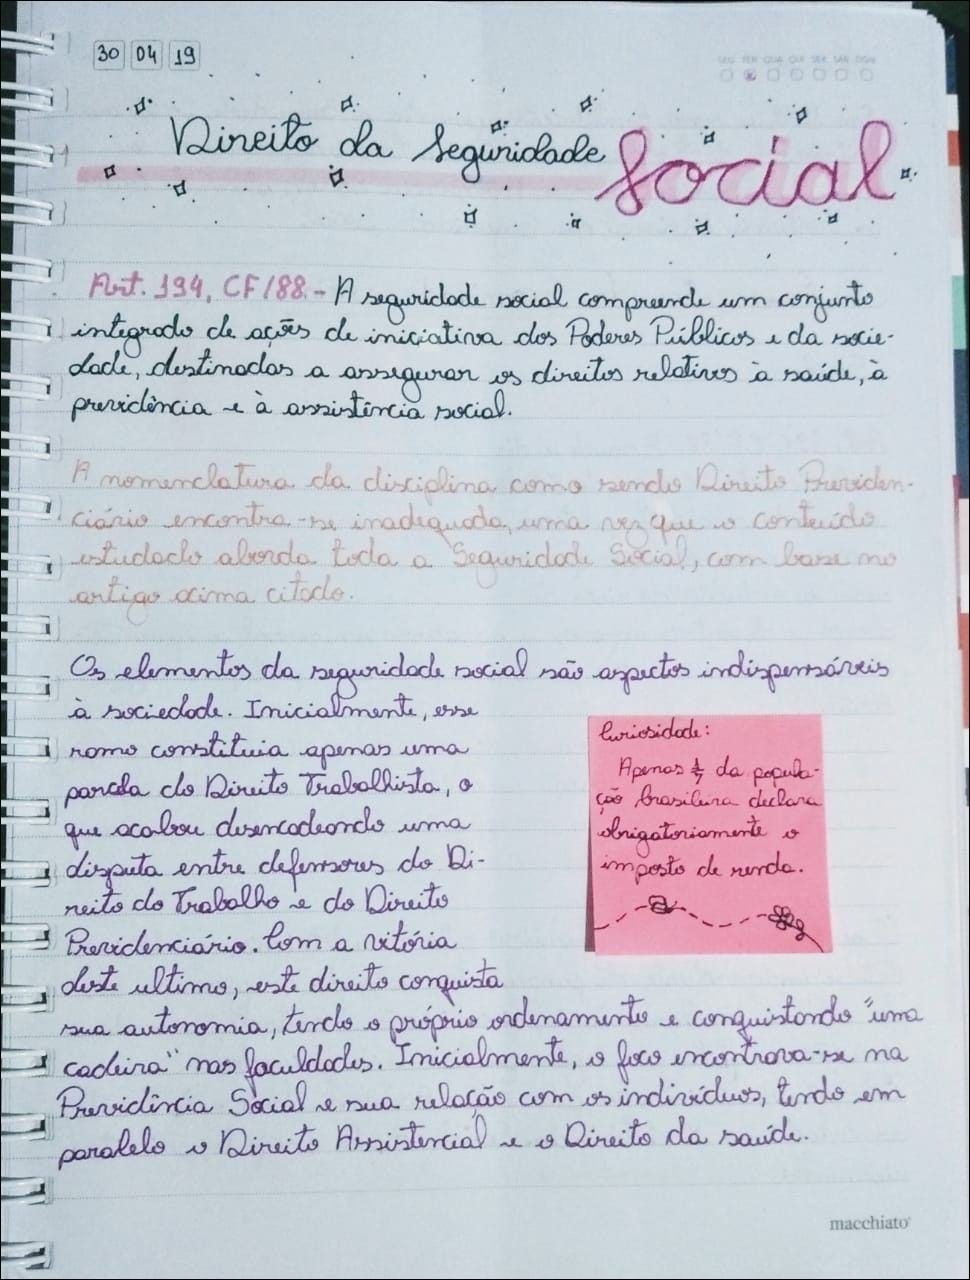 30 04 19
SEG TER QUA QUI SEX SAB DOM
Direito da Seguridade Social
Art. 194, CF/88 - A seguridade social compreende um conjunto
integrado de ações de iniciativa dos Poderes Públicos e da socie-
dade, destinadas a assegurar os direitos relativos à saúde, à
previdência e à assistência social.
A nomenclatura da disciplina como sendo Direito Previden-
ciário encontra-se inadequada, uma vez que o conteúdo
estudado aborda toda a Seguridade Social, com base no
artigo acima citado.
Os elementos da seguridade social são aspectos indispensáveis
à sociedade. Inicialmente, esse
ramo constituia apenas uma
parcela do Direito Trabalhista, o
que acabou desencadeando uma
disputa entre defensores do Di-
reito do Trabalho e do Direito
Previdenciário. Com a vitória
deste ultimo, este direito conquista
sua autonomia, tendo o próprio ordenamento e conquistando "uma
cadeira" nas faculdades. Inicialmente, o foco encontrava-se na
Previdência Social e sua relação com os indivíduos, tendo em
paralelo o Direito Assistencial e o Direito da saúde.
Curiosidade:
Apenas 1/7 da popula-
ção brasileira declara
obrigatoriamente o
imposto de renda.
macchiato